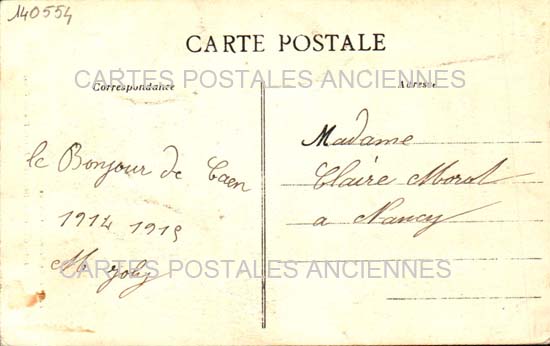 140554
CARTE POSTALE
CARTES POSTALES ANCIENNES
Correspondance
Adresse
le Bonjour de Caen
1914 1915
M Joly
Madame
Claire Morel
a Nancy
CARTES POSTALES ANCIENNES